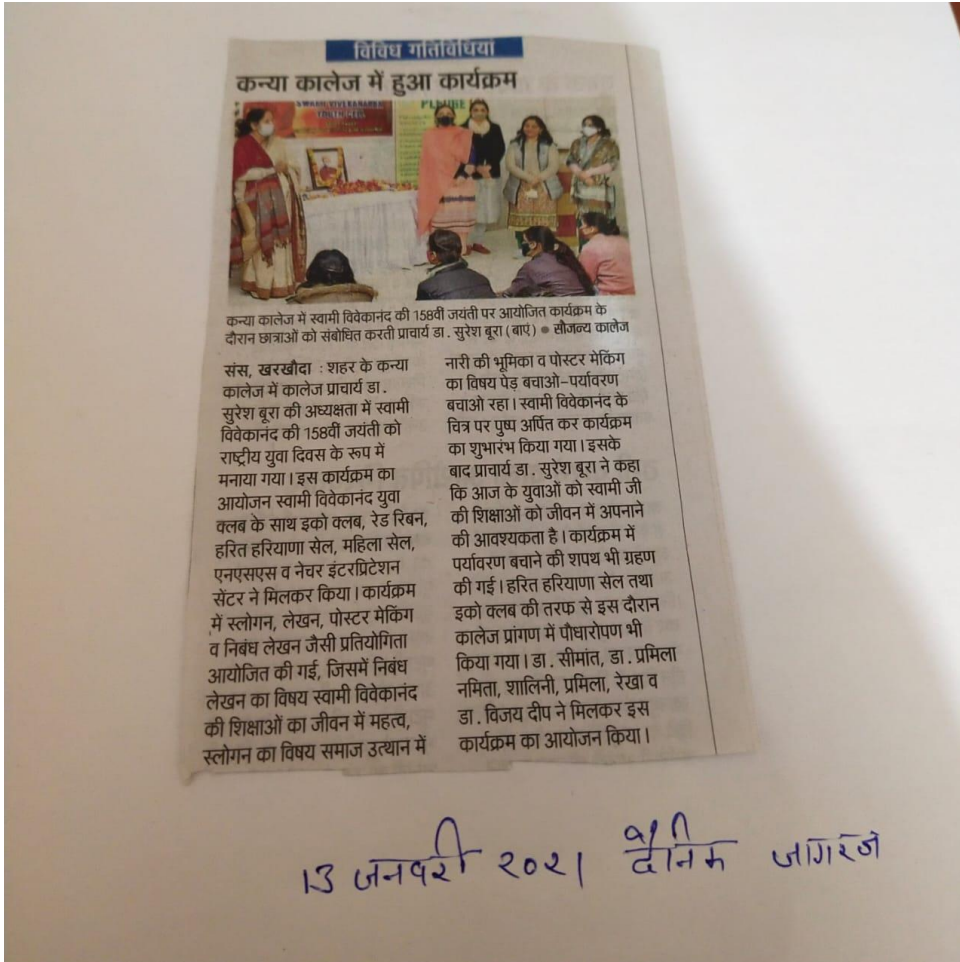 विविध गतिविधियां
कन्या कालेज में हुआ कार्यक्रम
SWAMI VIVEKANANDA
YOUTH CLUB
PLEDGE
कन्या कालेज में स्वामी विवेकानंद की 158वीं जयंती पर आयोजित कार्यक्रम के
दौरान छात्राओं को संबोधित करती प्राचार्य डा. सुरेश बूरा (बाएं) ● सौजन्य कालेज
संस, खरखौदा : शहर के कन्या
कालेज में कालेज प्राचार्य डा.
सुरेश बूरा की अध्यक्षता में स्वामी
विवेकानंद की 158वीं जयंती को
राष्ट्रीय युवा दिवस के रूप में
मनाया गया। इस कार्यक्रम का
आयोजन स्वामी विवेकानंद युवा
क्लब के साथ इको क्लब, रेड रिबन,
हरित हरियाणा सेल, महिला सेल,
एनएसएस व नेचर इंटरप्रिटेशन
सेंटर ने मिलकर किया। कार्यक्रम
में स्लोगन, लेखन, पोस्टर मेकिंग
व निबंध लेखन जैसी प्रतियोगिता
आयोजित की गई, जिसमें निबंध
लेखन का विषय स्वामी विवेकानंद
की शिक्षाओं का जीवन में महत्व,
स्लोगन का विषय समाज उत्थान में
नारी की भूमिका व पोस्टर मेकिंग
का विषय पेड़ बचाओ-पर्यावरण
बचाओ रहा। स्वामी विवेकानंद के
चित्र पर पुष्प अर्पित कर कार्यक्रम
का शुभारंभ किया गया। इसके
बाद प्राचार्य डा. सुरेश बूरा ने कहा
कि आज के युवाओं को स्वामी जी
की शिक्षाओं को जीवन में अपनाने
की आवश्यकता है। कार्यक्रम में
पर्यावरण बचाने की शपथ भी ग्रहण
की गई। हरित हरियाणा सेल तथा
इको क्लब की तरफ से इस दौरान
कालेज प्रांगण में पौधारोपण भी
किया गया। डा. सीमांत, डा. प्रमिला
नमिता, शालिनी, प्रमिला, रेखा व
डा. विजय दीप ने मिलकर इस
कार्यक्रम का आयोजन किया।
13 जनवरी २०२१ दैनिक जागरण